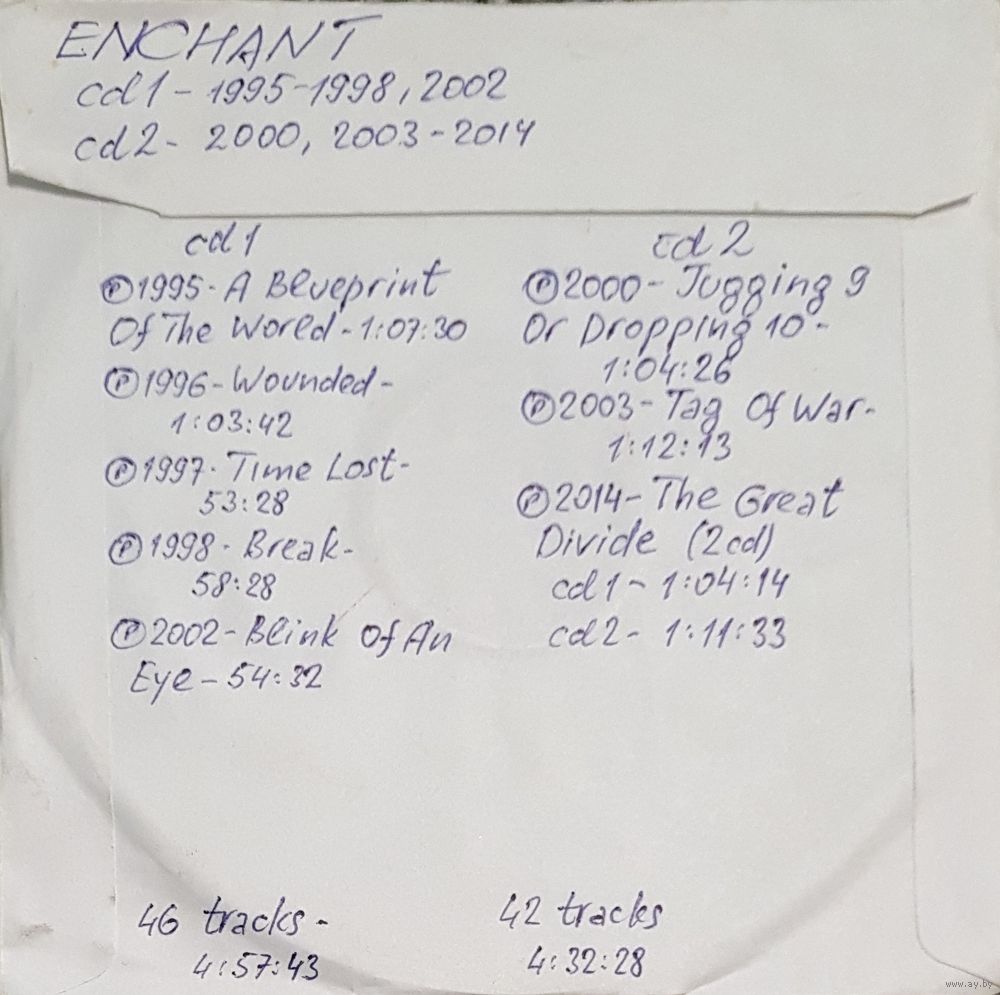 ENCHANT
cd1 - 1995-1998, 2002
cd2 - 2000, 2003-2014
cd 1
Ⓟ1995- A Blueprint
Of The World - 1:07:30
Ⓟ1996- Wounded -
1:03:42
Ⓟ1997- Time Lost -
53:28
Ⓟ1998- Break -
58:28
Ⓟ2002- Blink Of An
Eye - 54:32
46 tracks -
4:57:43
cd 2
Ⓟ2000- Jugging 9
Or Dropping 10 -
1:04:26
Ⓟ2003- Tag Of War -
1:12:13
Ⓟ2014- The Great
Divide (2cd)
cd1 - 1:04:14
cd2 - 1:11:33
42 tracks
4:32:28
www.ay.by